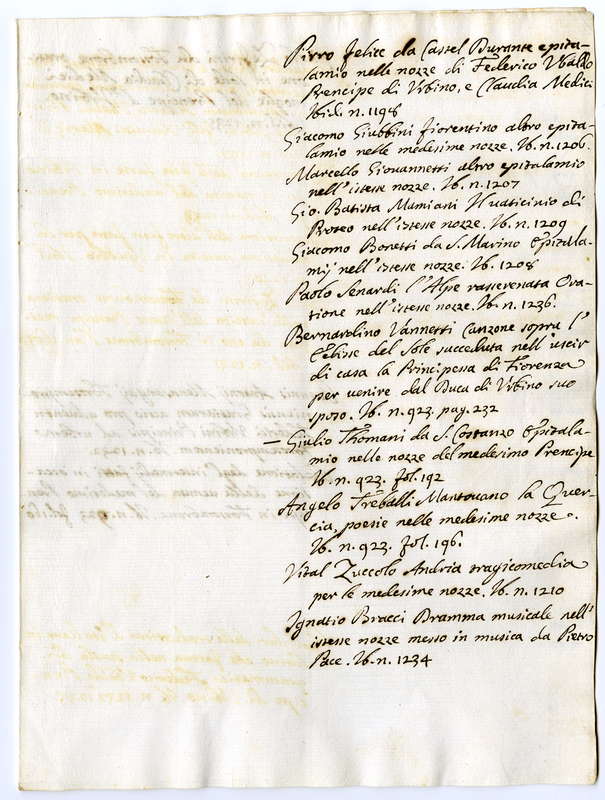 Pirro Felice da Castel Durante epita-
lamio nelle nozze di Federico Ubaldo
Prencipe di Urbino, e Claudia Medici
Ibid. n. 1198
Giacomo Giubbini fiorentino altro epita-
lamio nelle medesime nozze. Ib. n. 1206.
Marcello Giovannetti altro epitalamio
nell'istesse nozze. Ib. n. 1207
Gio. Batista Mamiani Il vaticinio di
Proteo nell'istesse nozze. Ib. n. 1209
Giacomo Bonetti da S. Marino Epitala-
mij nell'istesse nozze. Ib. 1208
Paolo Senardi l'Alpe rasserenata Ora-
tione nell'istesse nozze. Ib. n. 1236.
Bernardino Vannetti Canzone sopra l'
Eclisse del Sole succeduta nell'uscir
di casa la Principessa di Fiorenza
per venire dal Duca di Urbino suo
sposo. Ib. n. 923. pag. 232
– Giulio Thomani da S. Costanzo Epitala-
mio nelle nozze del medesimo Prencipe
Ib. n. 923. fol. 192
Angelo Treballi Mantovano la Quer-
cia, poesie nelle medesime nozze.
Ib. n. 923. fol. 196.
Vital Zuccolo Andria tragicomedia
per le medesime nozze. Ib. n. 1210
Ignatio Bracci Dramma musicale nell'
istesse nozze messo in musica da Pietro
Pace. Ib. n. 1234